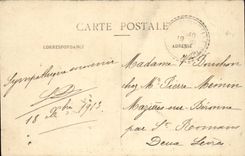 CARTE POSTALE
CORRESPONDANCE
ADRESSE
Sympathique souvenir
18 1913
Madame Vve
chez Mr Pierre
Mazières sur Béronne
par St Romans
Deux Sèvres